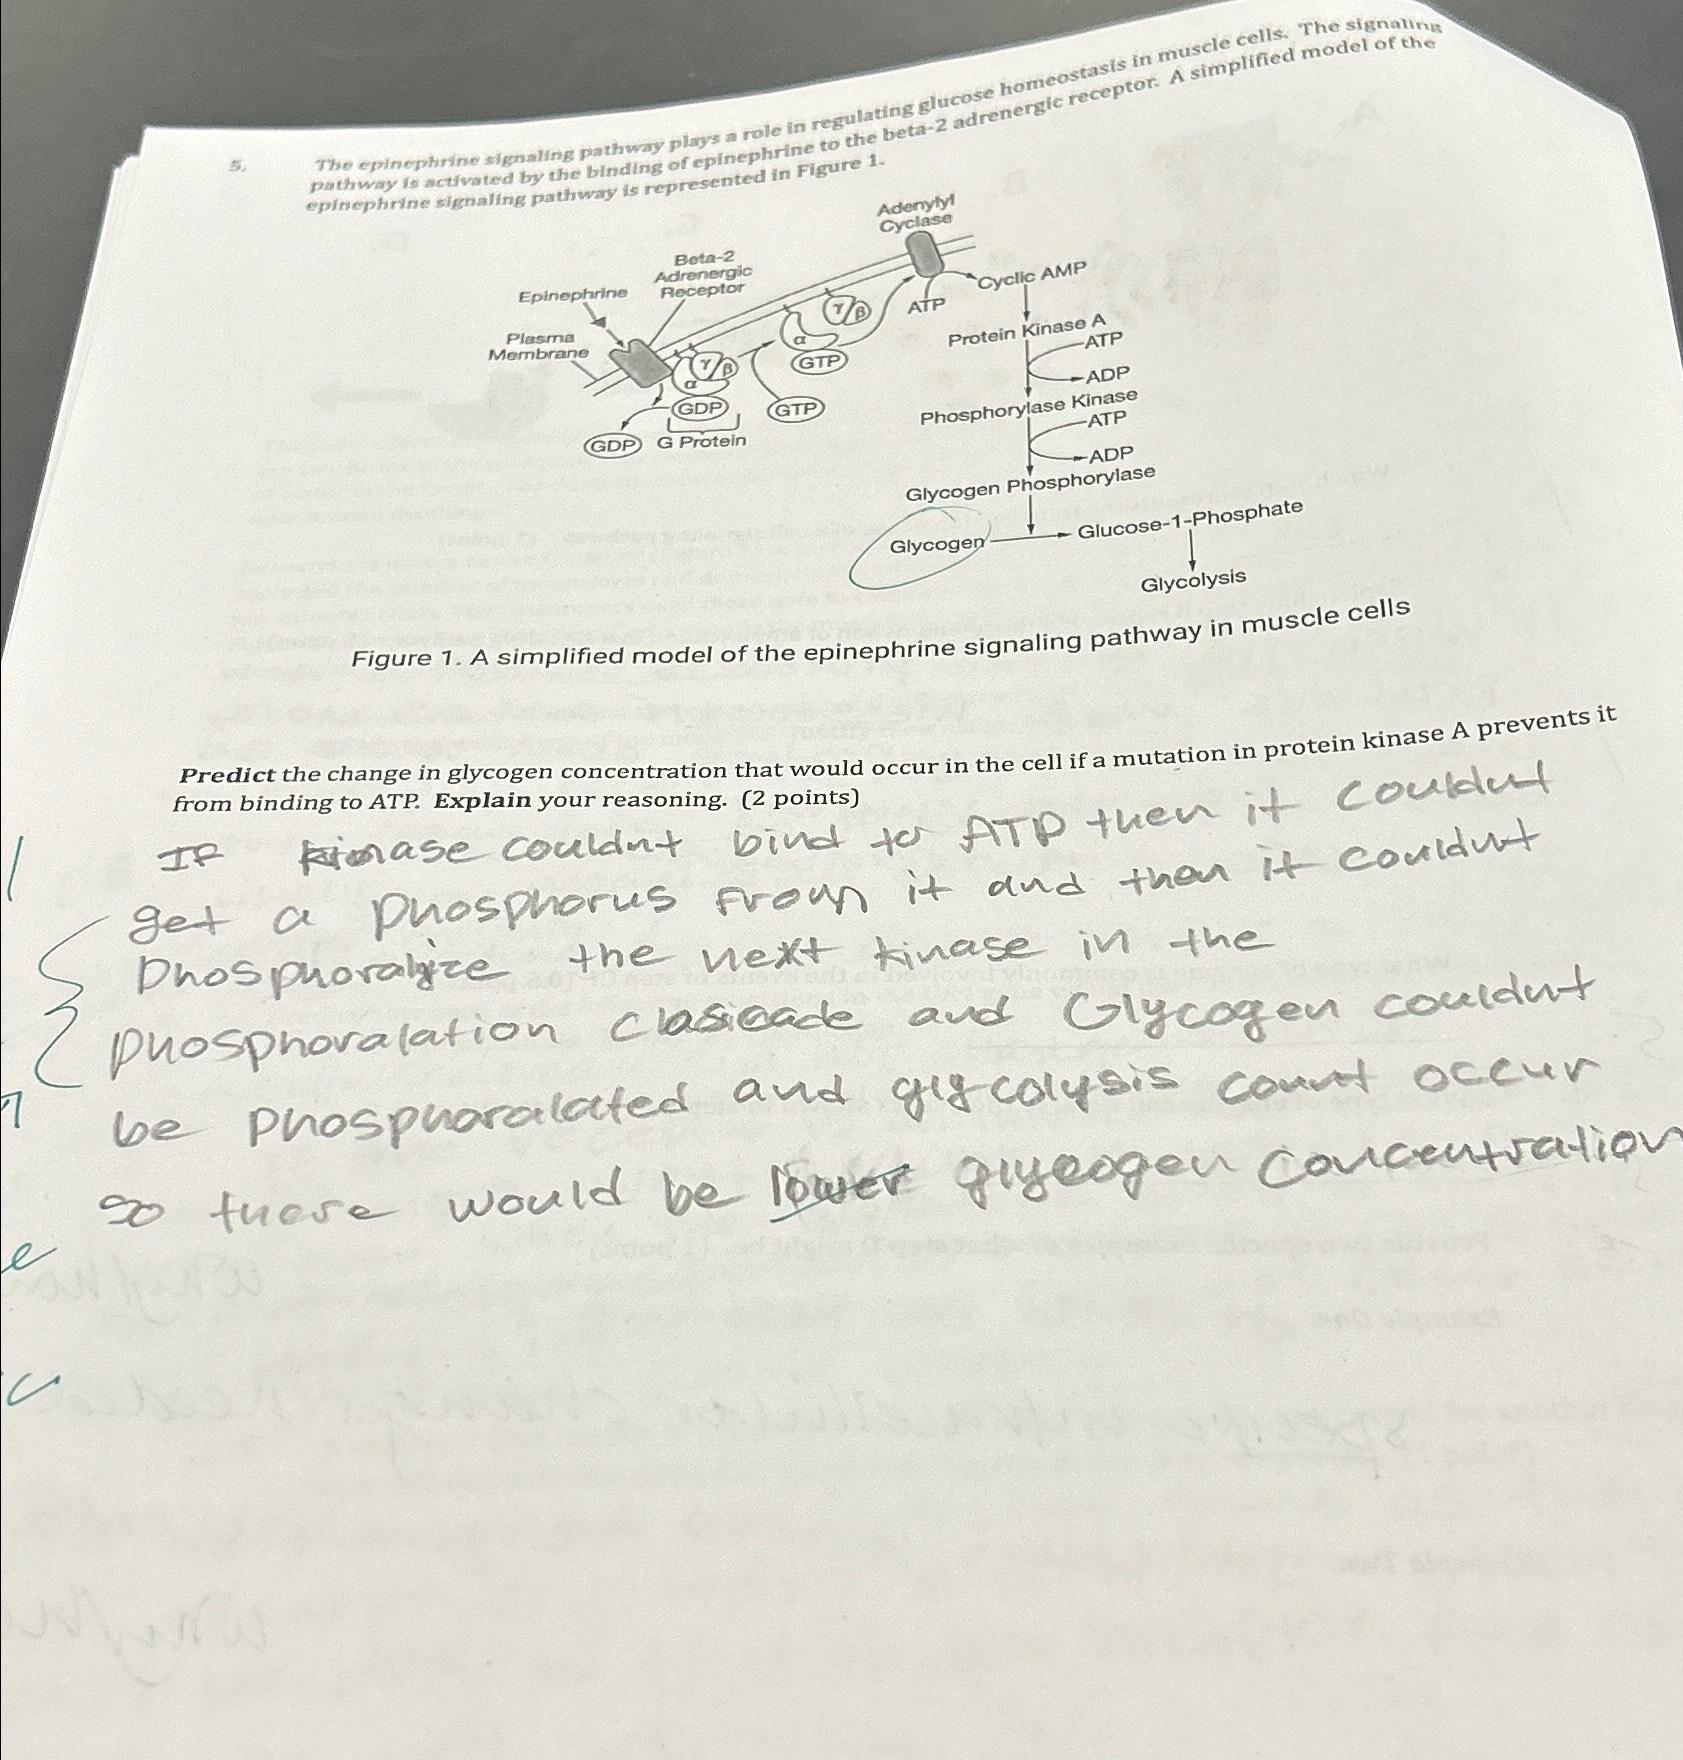 5. The epinephrine signaling pathway plays a role in regulating glucose homeostasis in muscle cells. The signaling
pathway is activated by the binding of epinephrine to the beta-2 adrenergic receptor. A simplified model of the
epinephrine signaling pathway is represented in Figure 1.
Adenylyl
Cyclase
Beta-2
Adrenergic
Receptor
Epinephrine
Plasma
Membrane
Cyclic AMP
ATP
γ/β
α
GTP
γ/β
α
GDP
GTP
GDP
G Protein
Protein Kinase A
ATP
ADP
Phosphorylase Kinase
ATP
ADP
Glycogen Phosphorylase
Glycogen
Glucose-1-Phosphate
Glycolysis
Figure 1. A simplified model of the epinephrine signaling pathway in muscle cells
Predict the change in glycogen concentration that would occur in the cell if a mutation in protein kinase A prevents it
from binding to ATP. Explain your reasoning. (2 points)
If kinase couldnt bind to ATP then it couldnt
get a phosphorus from it and then it couldnt
phosphoralize the next kinase in the
phosphoralation clasicade and Glycogen couldnt
be phosphoralated and glycolysis couldnt occur
so there would be lower glycogen concentration